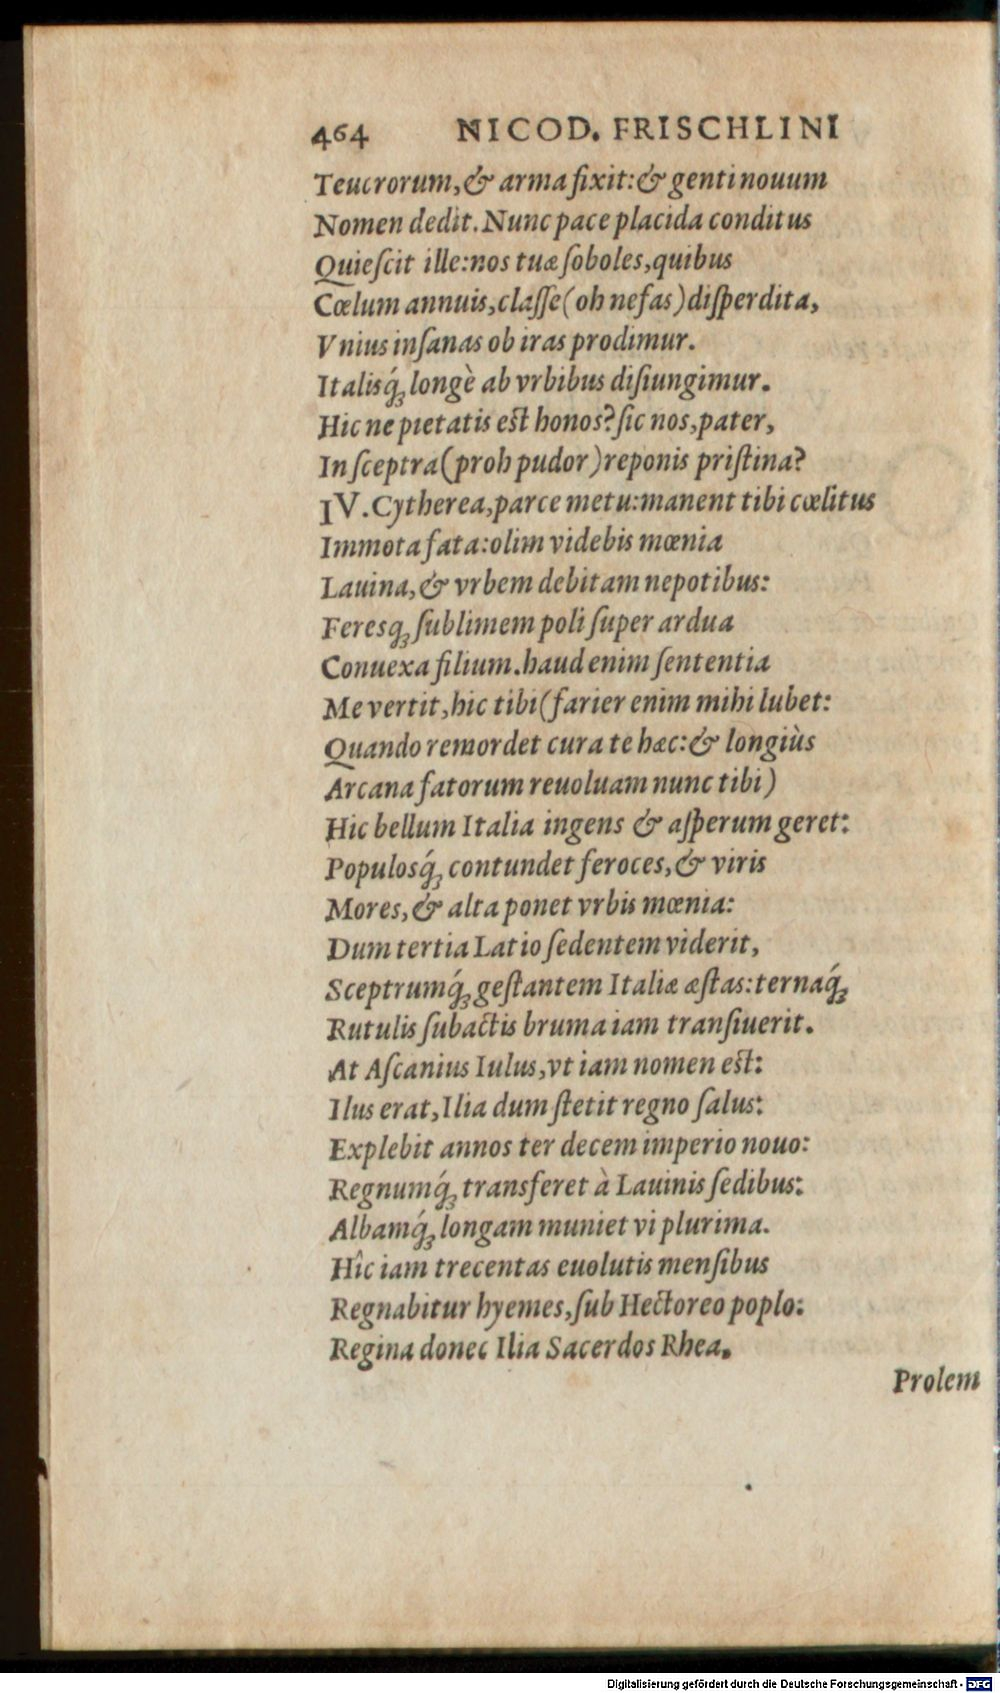 464 NICOD. FRISCHLINI
Teucrorum, & arma fixit: & genti nouum
Nomen dedit. Nunc pace placida conditus
Quieſcit ille: nos tuæ ſoboles, quibus
Cœlum annuis, claſſe (oh nefas) diſperdita,
Vnius inſanas ob iras prodimur.
Italisq́; longè ab vrbibus diſiungimur.
Hic ne pietatis eſt honos? ſic nos, pater,
In ſceptra (proh pudor) reponis priſtina?
IV. Cytherea, parce metu: manent tibi cœlitus
Immota fata: olim videbis mœnia
Lauina, & vrbem debitam nepotibus:
Feresq; ſublimem poli ſuper ardua
Conuexa filium. haud enim ſententia
Me vertit, hic tibi (farier enim mihi lubet:
Quando remordet cura te hæc: & longiùs
Arcana fatorum reuoluam nunc tibi)
Hic bellum Italia ingens & aſperum geret:
Populosq́; contundet feroces, & viris
Mores, & alta ponet vrbis mœnia:
Dum tertia Latio ſedentem viderit,
Sceptrumq́; geſtantem Italiæ æſtas: ternaq́;
Rutulis ſubactis bruma iam tranſiuerit.
At Aſcanius Iulus, vt iam nomen eſt:
Ilus erat, Ilia dum ſtetit regno ſalus:
Explebit annos ter decem imperio nouo:
Regnumq́; transferet à Lauinis ſedibus:
Albamq́; longam muniet vi plurima.
Hîc iam trecentas euolutis menſibus
Regnabitur hyemes, ſub Hectoreo poplo:
Regina donec Ilia Sacerdos Rhea.
Prolem
Digitalisierung gefördert durch die Deutsche Forschungsgemeinschaft - DFG